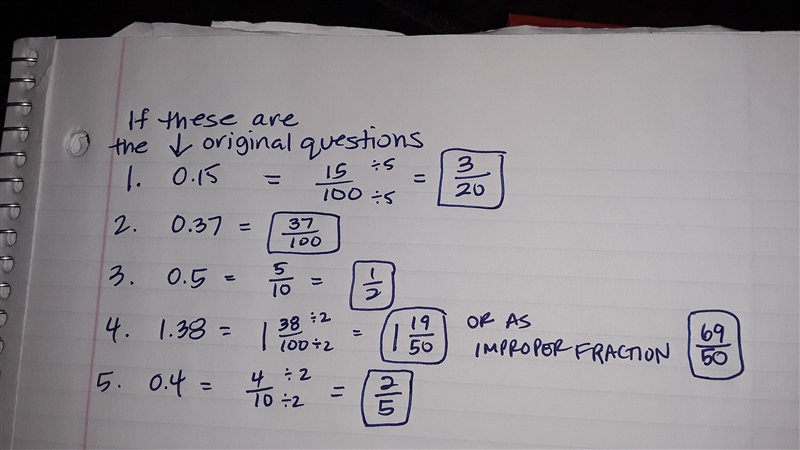 If these are
the ↓ original questions
1. 0.15 = 15/100 ÷5/÷5 = 3/20
2. 0.37 = 37/100
3. 0.5 = 5/10 = 1/2
4. 1.38 = 1 38/100 ÷2/÷2 = 1 19/50 OR AS IMPROPER FRACTION 69/50
5. 0.4 = 4/10 ÷2/÷2 = 2/5